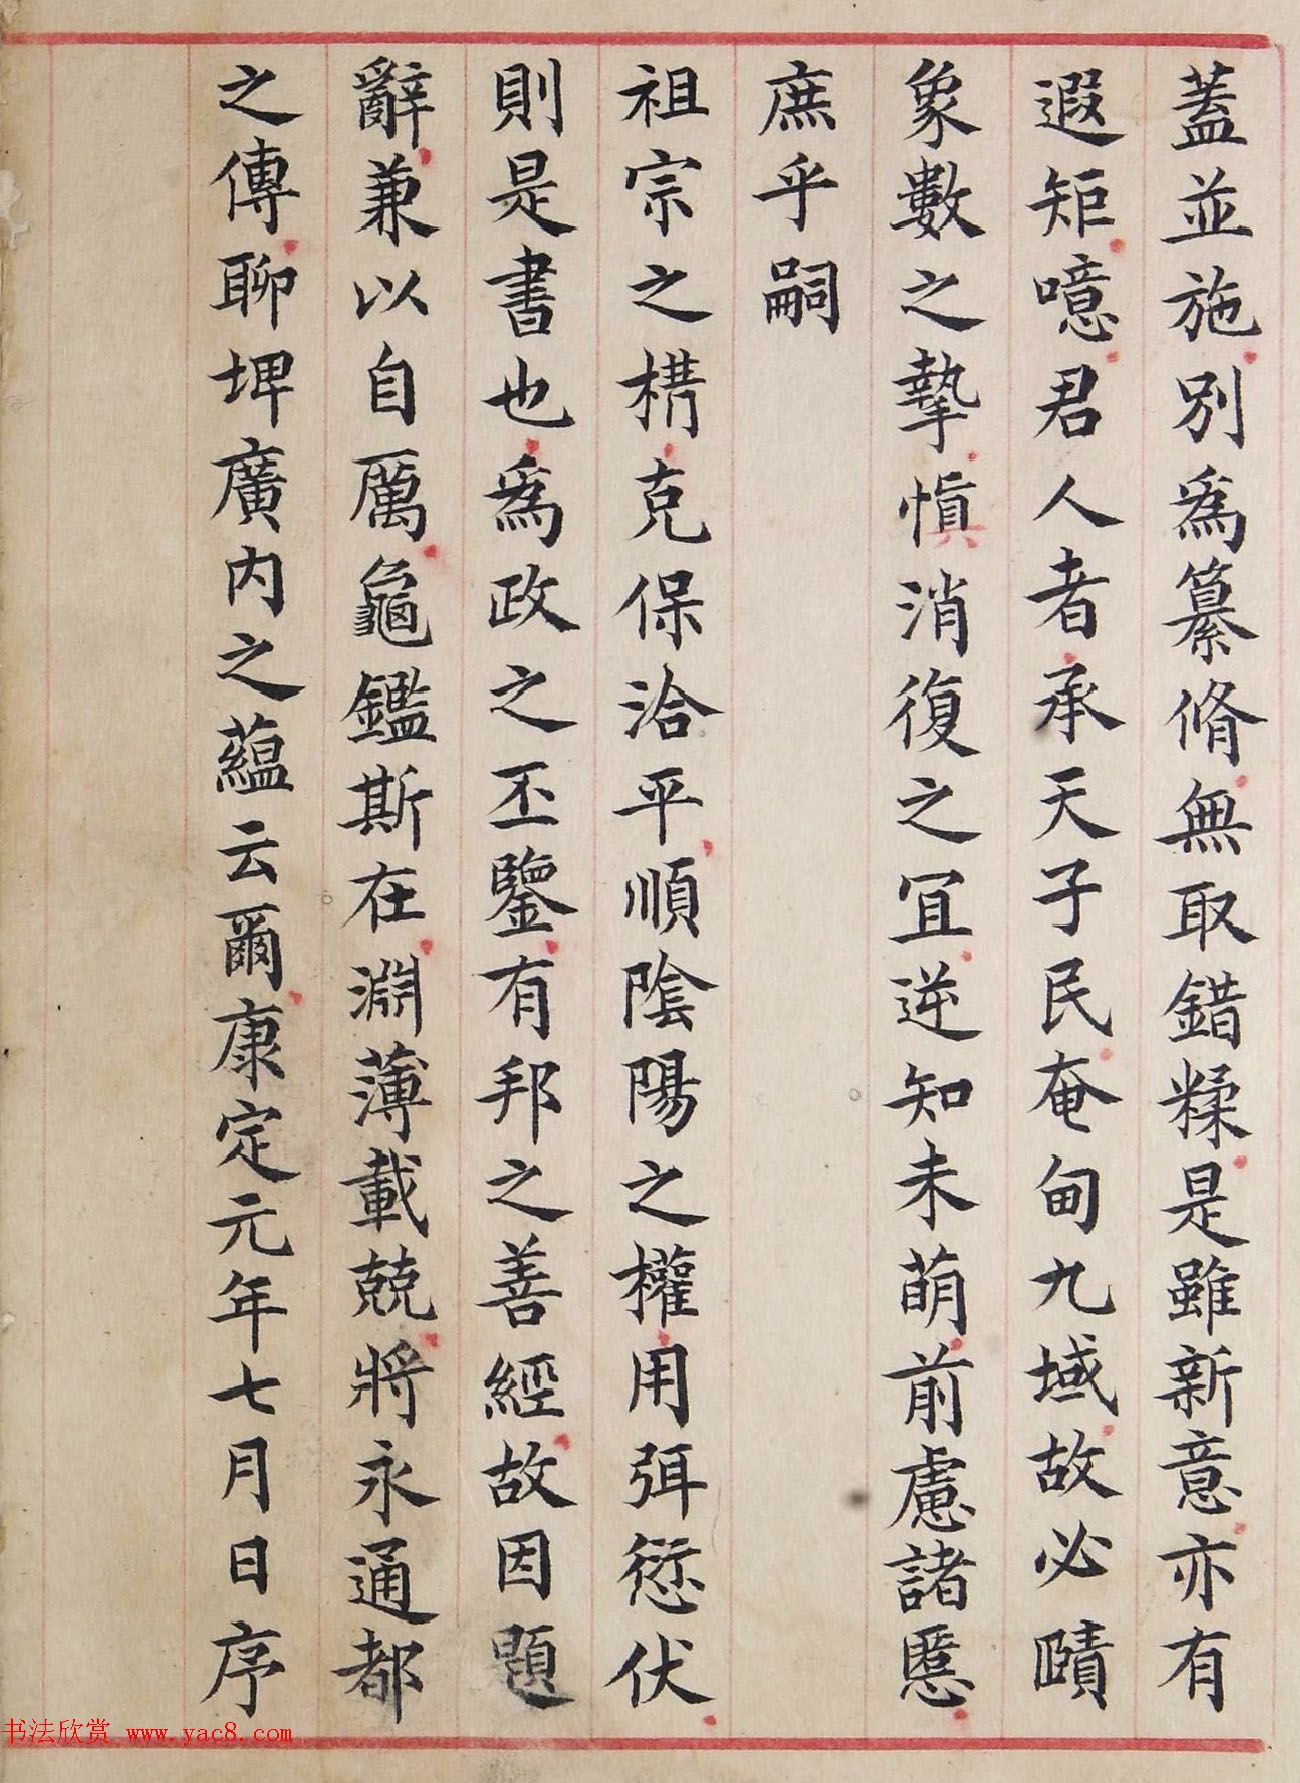 蓋並施別爲纂脩無取錯糅是雖新意亦有
遐矩噫君人者承天子民奄甸九域故必賾
象數之摯慎消復之宜逆知未萌前慮諸慝
庶乎嗣
祖宗之構克保洽平順陰陽之權用弭愆伏
則是書也爲政之丕鑒有邦之善經故因題
辭兼以自厲龜鑑斯在淵薄載兢將永通都
之傳聊埤廣内之蘊云爾康定元年七月日序
书法欣赏 www.yac8.com